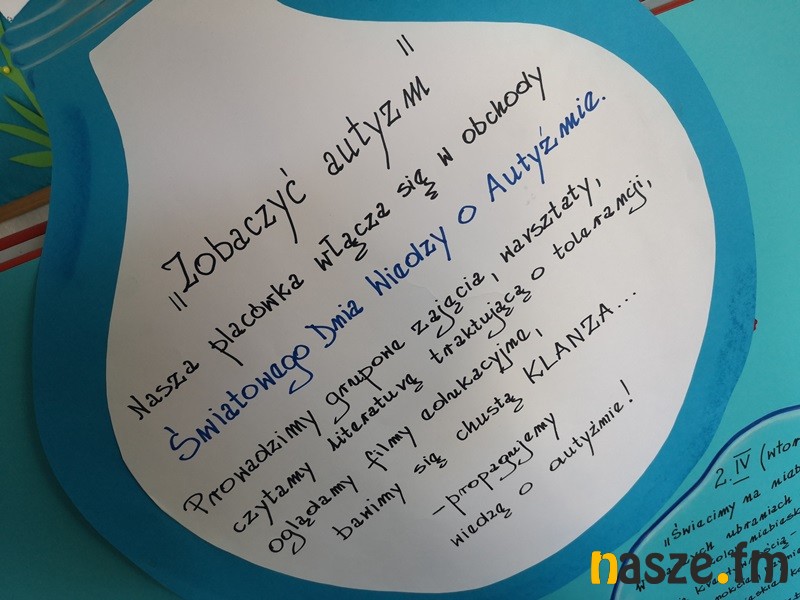 „Zobaczyć autyzm"
Nasza placówka włącza się w obchody
Światowego Dnia Wiedzy o Autyźmie.
Prowadzimy grupowe zajęcia, warsztaty,
czytamy literaturę traktującą o tolerancji,
oglądamy filmy edukacyjne,
bawimy się chustą KLANZA...
-propagujemy
wiedzę o autyźmie!
2.IV (wtor
"Święcimy na nieb
ubraniach
nasze.fm